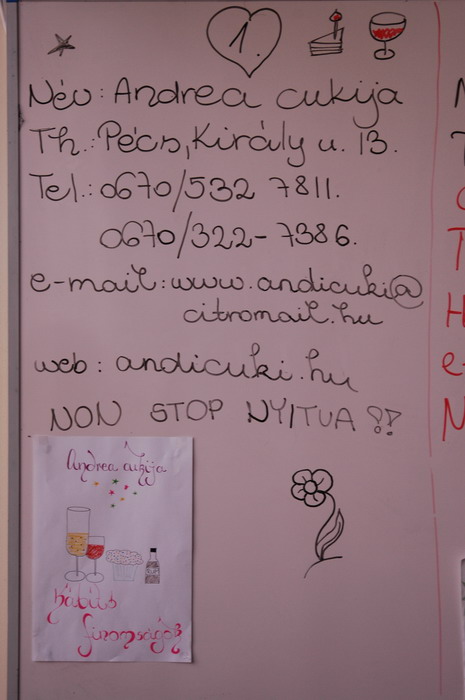 1.
Név: Andrea cukija
Th.: Pécs, Király u. 13.
Tel.: 0670/532 7811.
0670/322-7386.
e-mail: www.andicuki@
citromail.hu
web: andicuki.hu
NON STOP NYITVA !?
Andrea cukija
finomságok
N
T
T
H
e-
N